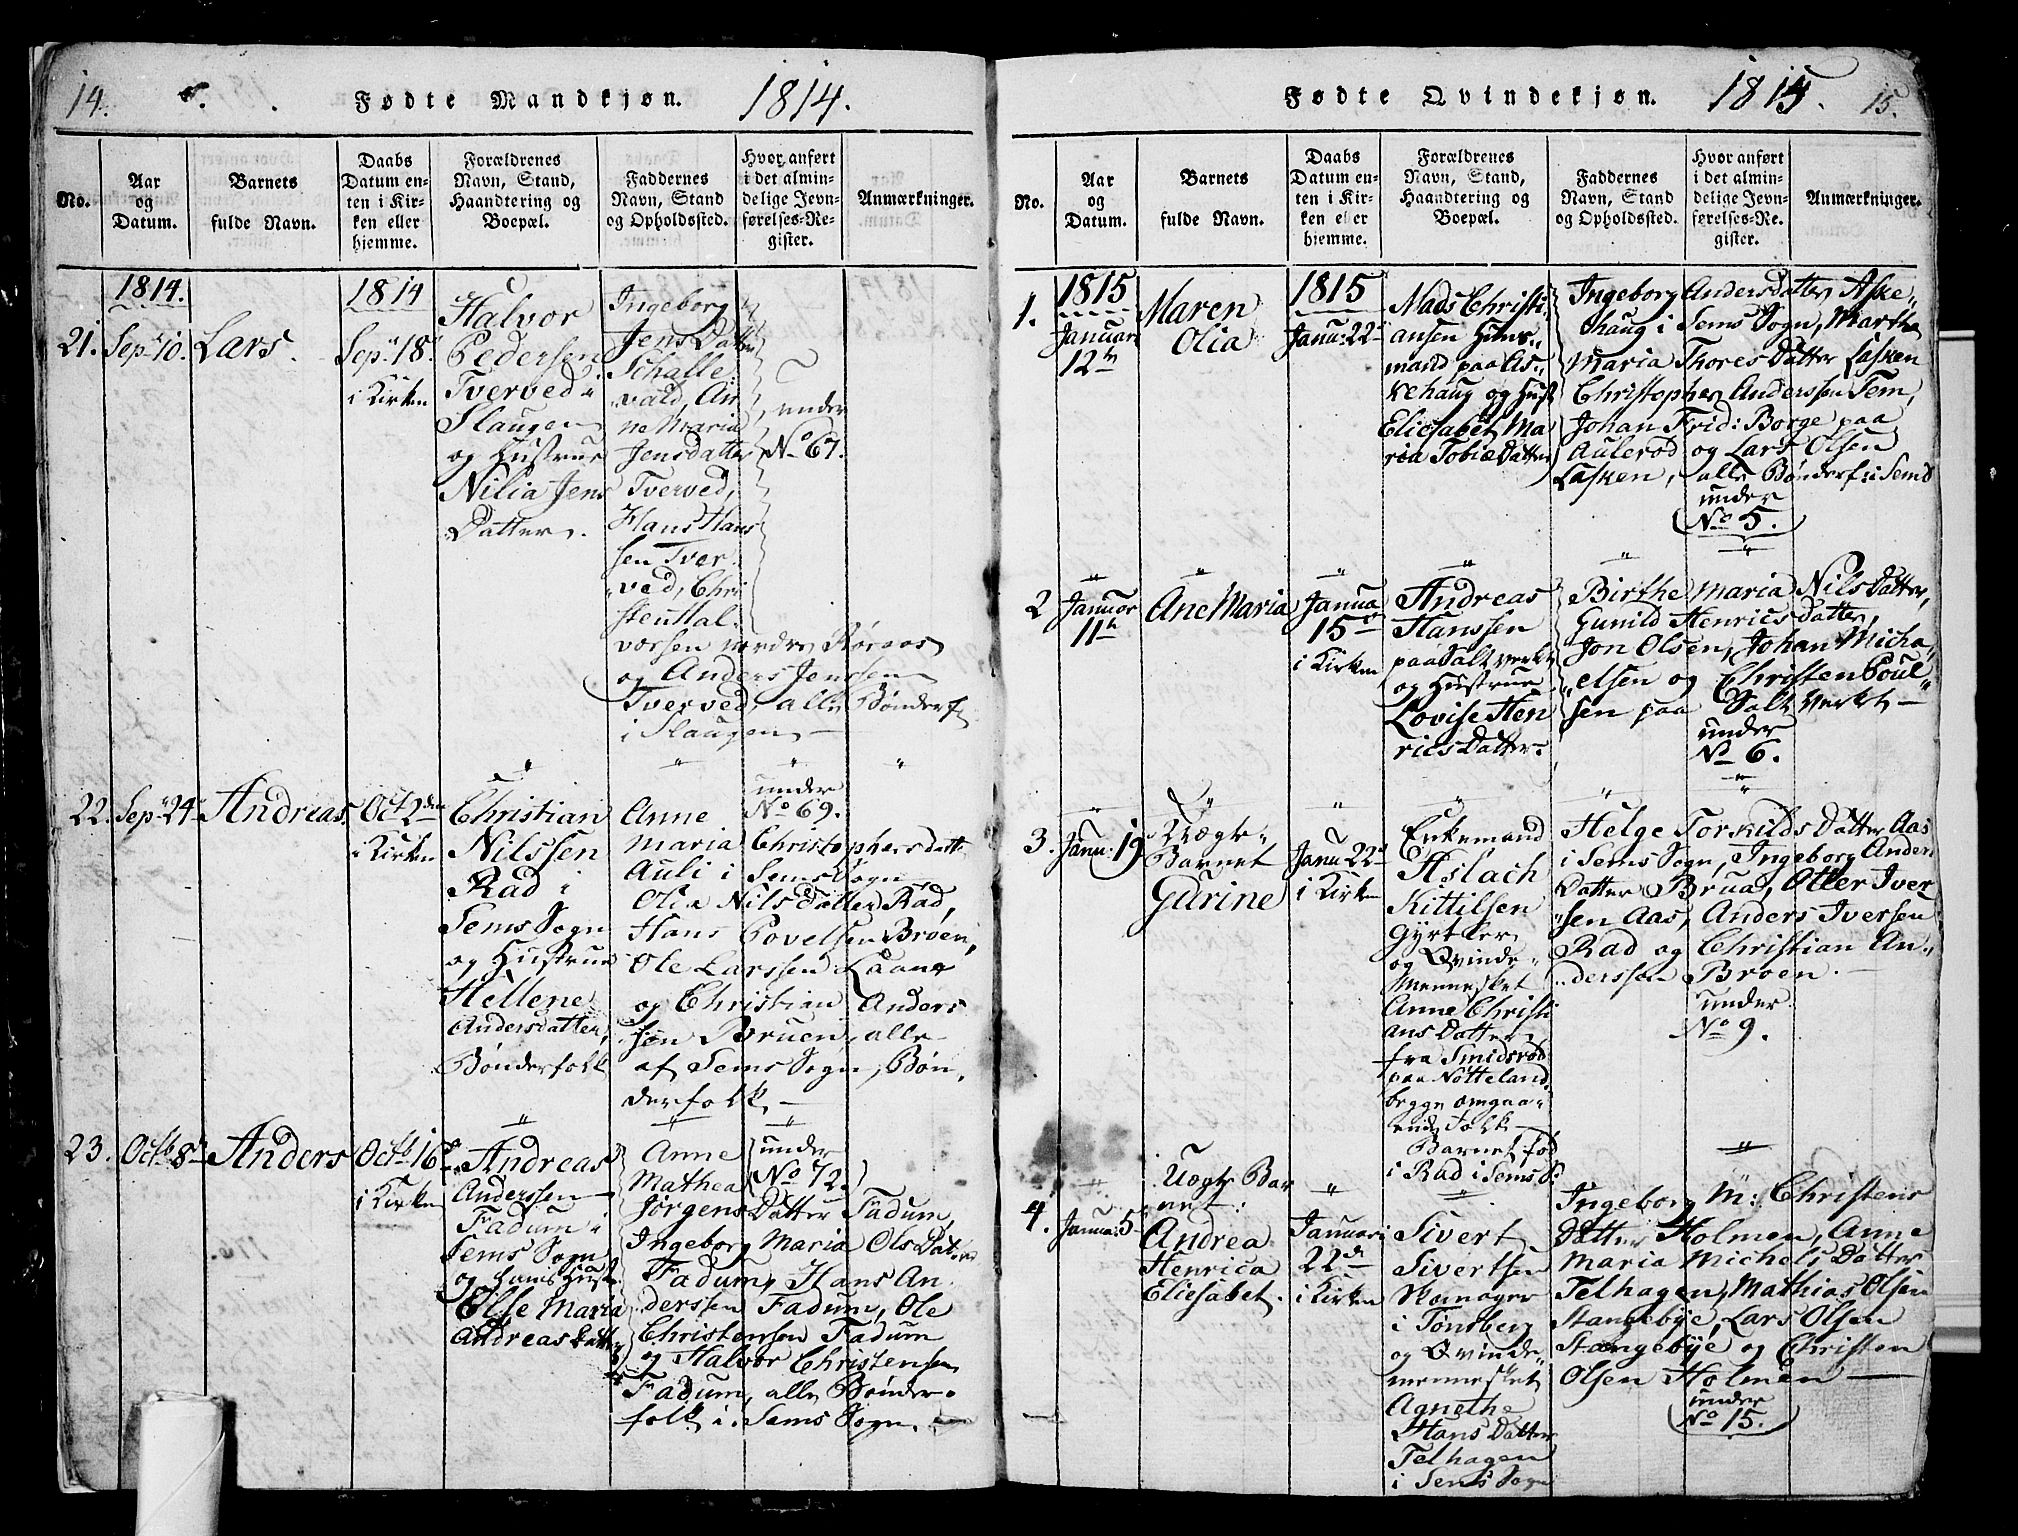 14.
Fødte Mandkjøn.
1814.
No.
Aar
og
Datum.
Barnets
fulde Navn.
Daabs
Datum en-
ten i Kir-
ken eller
hjemme.
Forældrenes
Navn, Stand,
Haandtering og
Boepæl.
Faddernes
Navn, Stand
og Opholdssted.
Hvor anført
i det almin-
delige Jevn-
førelses-Re-
gister.
Anmærkninger.
1814.
21. Sepr 10.
Lars.
1814
Sepr 18.
i Kirken
Halvor
Pedersen
Tverved i
Slaugen
og Hustrue
Nilia Jens
Datter.
Ingeborg
Jens Datter
Schalle
vald, An
ne Maria
Jensdatter
Tverved,
Hans Hans
sen Tver
ved, Chri
sten Hal
vorsen nordre Røraas
og Anders Jenssen
Tverved, alle Bønderf
i Slaugen
under
No 67.
22. Sepr 24
Andreas.
Oct 2den
i Kirken
Christian
Nilssen
Rad i
Sems Sogn
og Hustrue
Hellene
Andersdatter,
Bønderfolk
Anne
Maria Christophersdatt
Auli i Sems Sogn
Olia Nils Datter Rad,
Hans Povelsen Broen,
Ole Larssen Laane
og Christian Anders
sen Bruen, alle
af Sems Sogn, Bøn
derfolk
under
No 69.
23. Octb 8
Anders
Octb 16
i Kirken
Andreas
Anderssen
Fadum i
Sems Sogn
og hans Hust
Else Maria
Andreas Datter
Anne
Mathea
Jørgens Datter Fadum,
Ingeborg Maria Ols Datter
Fadum, Hans An
derssen Fadum, Ole
Christenssen Fadum
og Halvor Christensen
Fadum, alle Bønder
folk i Sems Sogn.
under
No 72.
Fødte Qvindekjøn.
1815.
15.
No.
Aar
og
Datum.
Barnets
fulde Navn.
Daabs
Datum en-
ten i Kir-
ken eller
hjemme.
Forældrenes
Navn, Stand,
Haandtering og
Boepæl.
Faddernes
Navn, Stand
og Opholdssted.
Hvor anført
i det almin-
delige Jevn-
førelses-Re-
gister.
Anmærkninger.
1.
1815
Januari
12te
Maren
Olia
1815
Janu: 22
Mads Christi
ansen Huus
mand paa As
kehaug og Hust
Eliesabet Ma
ria Tobiæ Datter
Ingeborg Anders Datter Aske
haug i Sems Sogn, Marthe
Maria Thores Datter Lasken
Christopher Anderssen Sem,
Johan Frid: Borge paa
Aulerød og Lars Olsen
Lasken, alle Bønderf: i Sems
under
No 5.
2
Januar
11te
Ane Maria
Janua
15
i Kirken
Andreas
Hanssen
paa Salt verket
og Hustrue
Lovise Hen
rics Datter
Birthe Maria Nils Datter,
Gunild Henrics Datter,
Jon Olsen, Johan Micha
elsen og Christen Poul
sen paa Salt verket
under
No 6.
3.
Janu: 19
Uægte
Barnet
Gurine
Janu 22
i Kirken
Enkemand
Aslach
Kittilsen
Gyrtler
og Qvinde
mennesket
Anne Christi
ans Datter
fra Smidsrød
paa Nøtteland
begge omgaa
ende Folk
Barnet fød
i Rad i Sems S:
Helge Torkilds Datter Aas
i Sems Sogn, Ingeborg Anders
Datter Brua, Otter Iver
sen Aas, Anders Iversen
Rad og Christian An
derssen Broen.
under
No 9.
4.
Janua: 5
Uægte Bar
net:
Andrea
Henrica
Eliesabet.
Januari
22de
i Kirken
Sivert
Sivertsen
Skomager
i Tønsberg
og Qvinde
mennesket
Agnethe
Hans Datter
Telhagen
i Sems Sogn
Ingeborg M: Christens
Datter Holmen, Anne
Maria Michels Datter
Telhagen, Mathias Olsen
Stangebye, Lars Olsen
Stangebye og Christen
Olsen Holmen
under
No 15.